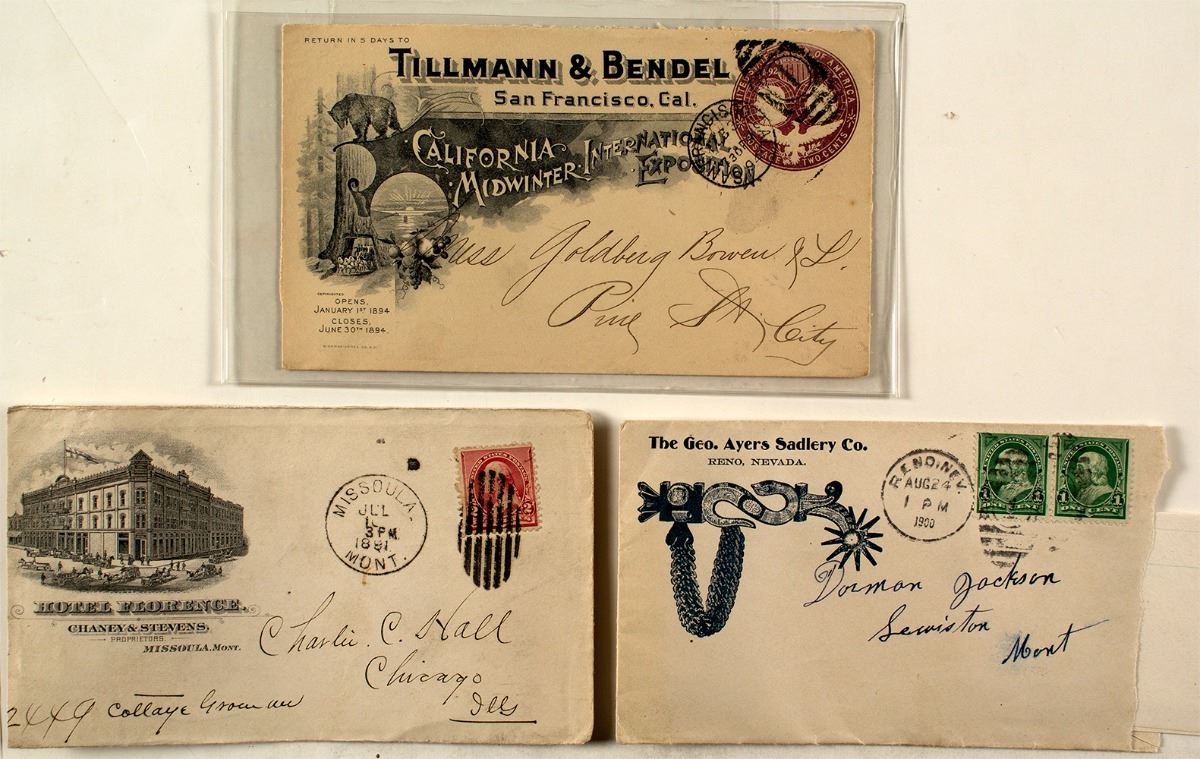 RETURN IN 5 DAYS TO
TILLMANN & BENDEL
San Francisco, Cal.
CALIFORNIA
MIDWINTER INTERNATIONAL
EXPOSITION
UNITED STATES OF AMERICA
POSTAGE TWO CENTS
COPYRIGHTED
OPENS,
JANUARY 1ST 1894
CLOSES,
JUNE 30TH 1894.
Goldberg Bowen & L.
Pine St, City
HOTEL FLORENCE.
CHANEY & STEVENS,
PROPRIETORS.
MISSOULA. MONT.
MISSOULA
JUL
3 PM
1891
MONT.
Charlie C. Hall
Chicago
Ills
2449 Cottage
The Geo. Ayers Sadlery Co.
RENO, NEVADA.
RENO, NEV.
AUG 24
1 PM
1900
1 ONE CENT 1
1 ONE CENT 1
Dorman Jackson
Lewiston
Mont